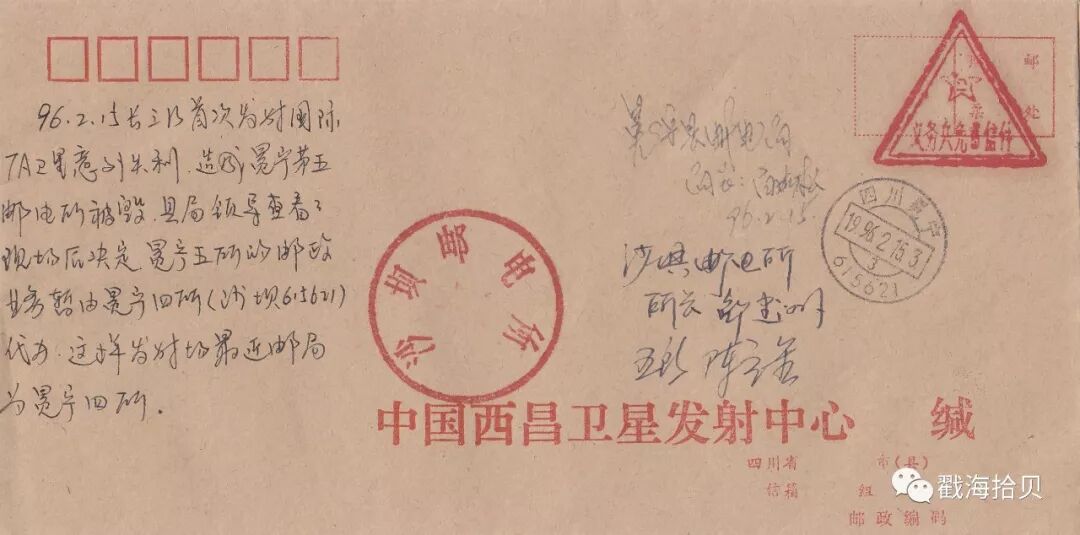 96.2.15长三乙首次发射国际
7A卫星意外失利.造成冕宁第五
邮电所被毁.县局领导查看了
现场后决定.冕宁五所的邮政
业务暂由冕宁四所(沙坝615621)
代办.这样发射场最近邮局
为冕宁四所.
义务兵免费信件
冕宁县邮电局
局长:
96.2.15.
四川冕宁
1996.2.15.3
3
615621
沙坝邮电所
沙坝邮电所
所长
五所 陈
中国西昌卫星发射中心 缄
四川省 市(县)
信箱 组
邮政编码
戳海拾贝